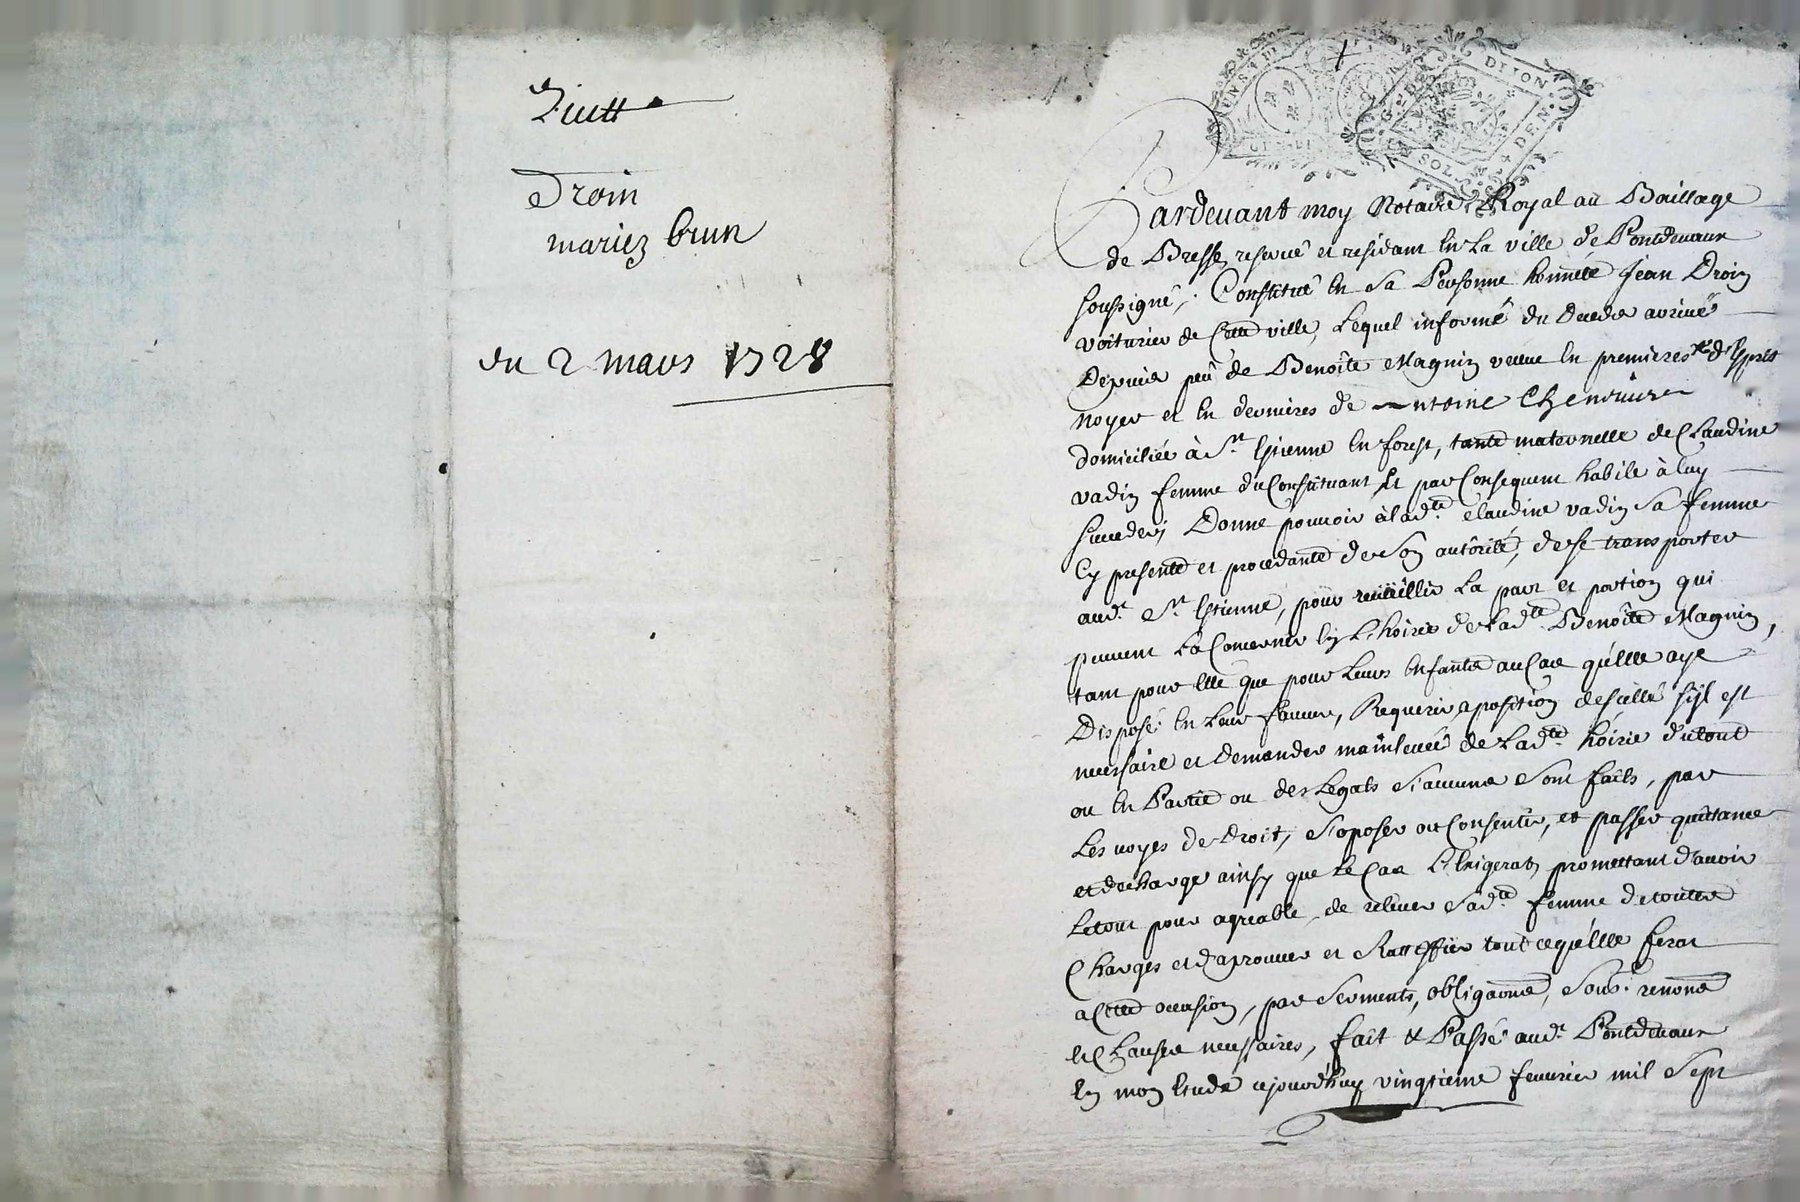 Droin
mariez brun
du 2 mars 1728
DIJON
G. DE
DEN.
SOL.
Pardevant moy Notaire Royal au Baillage
de Bresse reservé et residant en La ville de Pontdevaux
soussigné, Constitué en sa Personne honnête Jean Droin
voiturier de Cette ville, Lequel informé du deceds arrivé
depuis peu de Benoîte Magnin veuve en premieres d'Esprit
Noyer et en dernieres de Antoine
domiciliée à St. Etienne en forest, tante maternelle de Claudine
vadin femme du Constituant et par Consequent habile à luy
succeder, Donne pouvoir à lade. Claudine vadin sa femme
Cy presente et procedante de son autôrité, de se transporter
aud. St. Etienne, pour recueillir La part et portion qui
peuvent La Concerner en L'hoirie de Lade. Benoîte Magnin,
tant pour Elle que pour Leurs Enfants au Cas qu'Elle aye
Disposé en Leur faveur, Requerir aposition de scellé s'il est
necessaire et demander mainlevée de Lade. hoirie du tout
ou En Partie ou des Legats s'aucuns sont faits, par
Les voyes de Droit, s'oposer ou Consentir, et passer quittance
et décharge ainsy que le Cas L'Exigerat, promettant d'avoir
Le tout pour agreable, de relever sade. femme de toutes
Charges et d'aprouver et Rattiffier tout ce qu'Elle ferat
a Cette occasion, par serments, obligaons, sous. renons
et Clauses necessaires, fait & Passé aud. Pontdevaux
En mon Etude cejourd'huy vingtieme fevrier mil sept